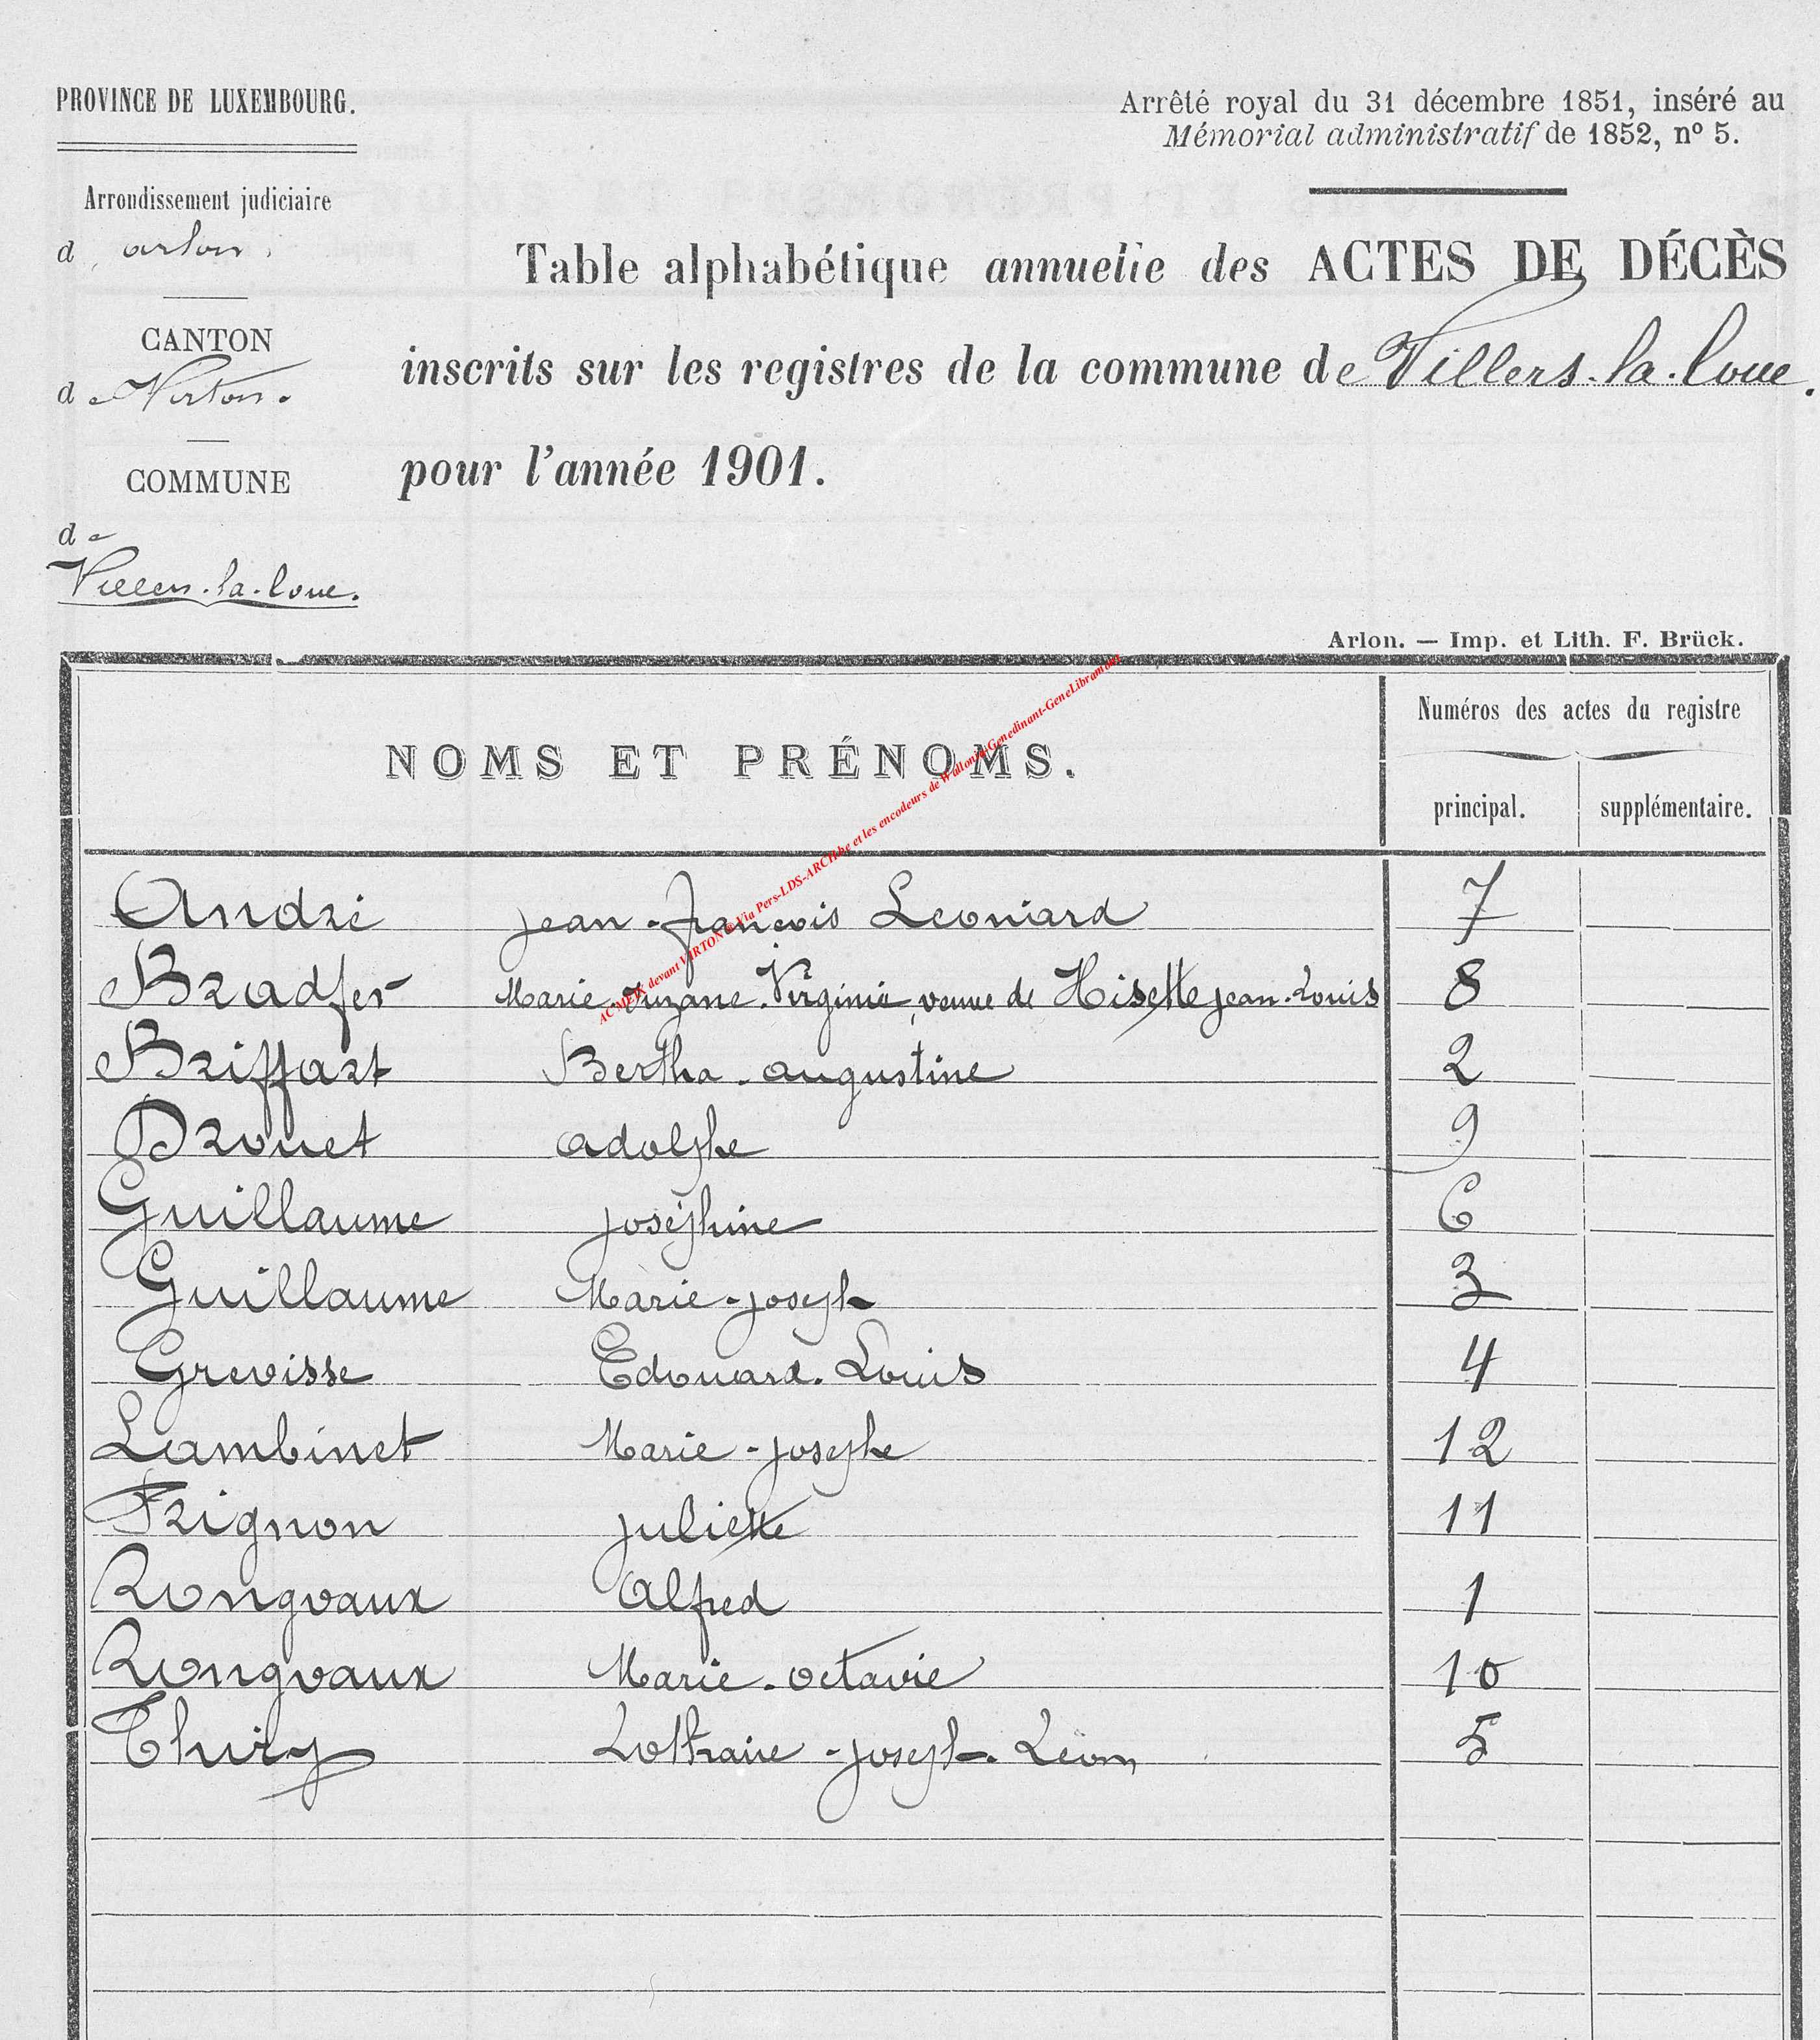 PROVINCE DE LUXEMBOURG.
Arrêté royal du 31 décembre 1851, inséré au
Mémorial administratif de 1852, nº 5.
Arrondissement judiciaire
d'arlon.
Table alphabétique annuelle des ACTES DE DÉCÈS
CANTON
de Virton.
inscrits sur les registres de la commune de Villers-la-Loue.
COMMUNE
pour l'année 1901.
de
Villers-la-Loue.
Arlon. — Imp. et Lith. F. Brück.
NOMS ET PRÉNOMS.
Numéros des actes du registre
principal. supplémentaire.
AC MEIX devant VIRTON @ Via Pers-LDS-ARCH.be et les encodeurs de Wallonia-Genedinant-GeneLibramont
André jean-françois Leoniard 7
Bradfer Marie-Suzane-Virginie, veuve de Hisette jean-Louis 8
Briffart Bertha-augustine 2
Drouet adolphe 9
Guillaume joséphine 6
Guillaume Marie-joseph 3
Grevisse Edouard-Louis 4
Lambinet Marie-josephe 12
Frignon juliette 11
Rongvaux Alfred 1
Rongvaux Marie-octavie 10
Thiry Lothaire-joseph-Léon 5